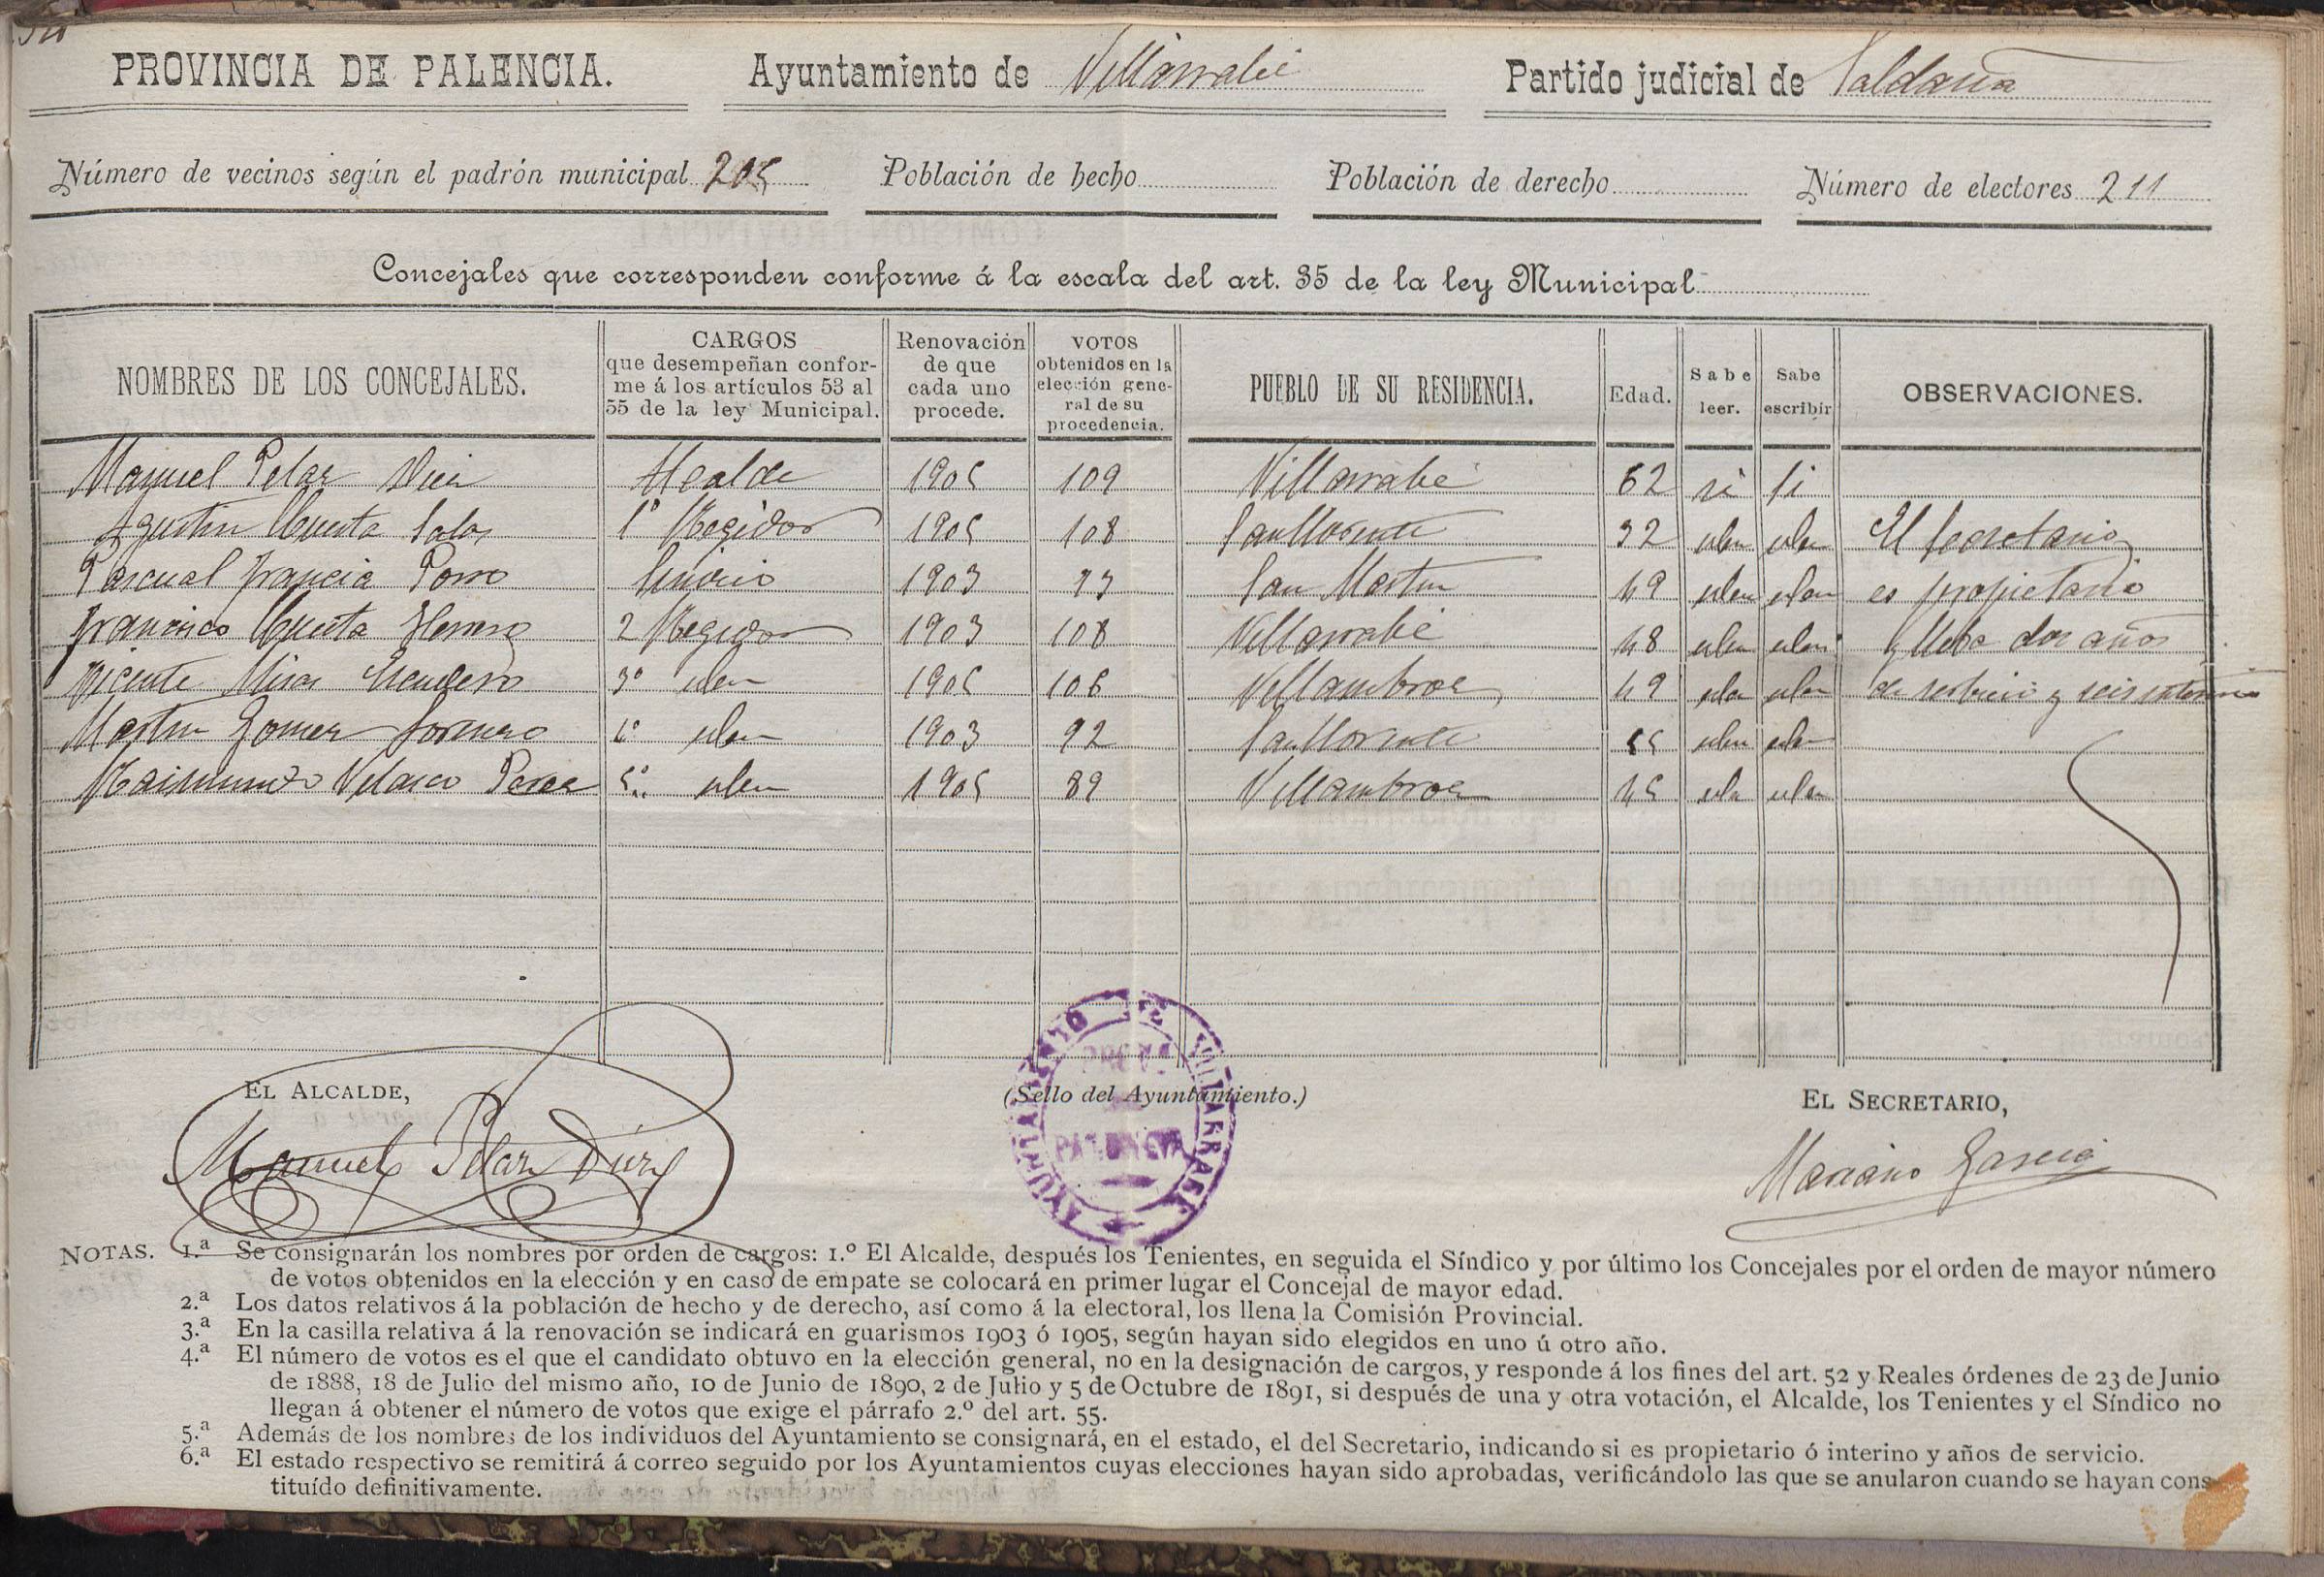 PROVINCIA DE PALENCIA. Ayuntamiento de Villarrabé Partido judicial de Saldaña
Número de vecinos según el padrón municipal 205 Población de hecho Población de derecho Número de electores 211
Concejales que corresponden conforme á la escala del art. 35 de la ley Municipal
NOMBRES DE LOS CONCEJALES. CARGOS que desempeñan conforme á los artículos 53 al 55 de la ley Municipal. Renovación de que cada uno procede. VOTOS obtenidos en la elección general de su procedencia. PUEBLO DE SU RESIDENCIA. Edad. Sabe leer. Sabe escribir OBSERVACIONES.
Manuel Pelaz Diez Alcalde 1905 109 Villarrabé 62 si si
Agustin Cuesta Salas 1º Regidor 1905 108 San Llorente 32 iden iden El Secretario
Pascual Francia Porro Sindico 1903 93 San Martin 49 iden iden es propietario
Francisco Cuesta Herrero 2 Regidor 1903 108 Villarrabé 48 iden iden y lleba dos años
Vicente Misas Escudero 3º iden 1905 106 Villambroz 49 iden iden de serbicio y seis interino
Martin Gomez 4º iden 1903 92 San Llorente 55 iden iden
Raimundo Velasco Perez 5º iden 1905 89 Villambroz 45 iden iden
EL ALCALDE, (Sello del Ayuntamiento.) EL SECRETARIO,
AYUNTAMIENTO DE VILLARRABÉ
PALENCIA
Manuel Pelaz Diez Mariano Garcia
NOTAS. 1.ª Se consignarán los nombres por orden de cargos: 1.º El Alcalde, después los Tenientes, en seguida el Síndico y por último los Concejales por el orden de mayor número
de votos obtenidos en la elección y en caso de empate se colocará en primer lugar el Concejal de mayor edad.
2.ª Los datos relativos á la población de hecho y de derecho, así como á la electoral, los llena la Comisión Provincial.
3.ª En la casilla relativa á la renovación se indicará en guarismos 1903 ó 1905, según hayan sido elegidos en uno ú otro año.
4.ª El número de votos es el que el candidato obtuvo en la elección general, no en la designación de cargos, y responde á los fines del art. 52 y Reales órdenes de 23 de Junio
de 1888, 18 de Julio del mismo año, 10 de Junio de 1890, 2 de Julio y 5 de Octubre de 1891, si después de una y otra votación, el Alcalde, los Tenientes y el Síndico no
llegan á obtener el número de votos que exige el párrafo 2.º del art. 55.
5.ª Además de los nombres de los individuos del Ayuntamiento se consignará, en el estado, el del Secretario, indicando si es propietario ó interino y años de servicio.
6.ª El estado respectivo se remitirá á correo seguido por los Ayuntamientos cuyas elecciones hayan sido aprobadas, verificándolo las que se anularon cuando se hayan cons-
tituído definitivamente.